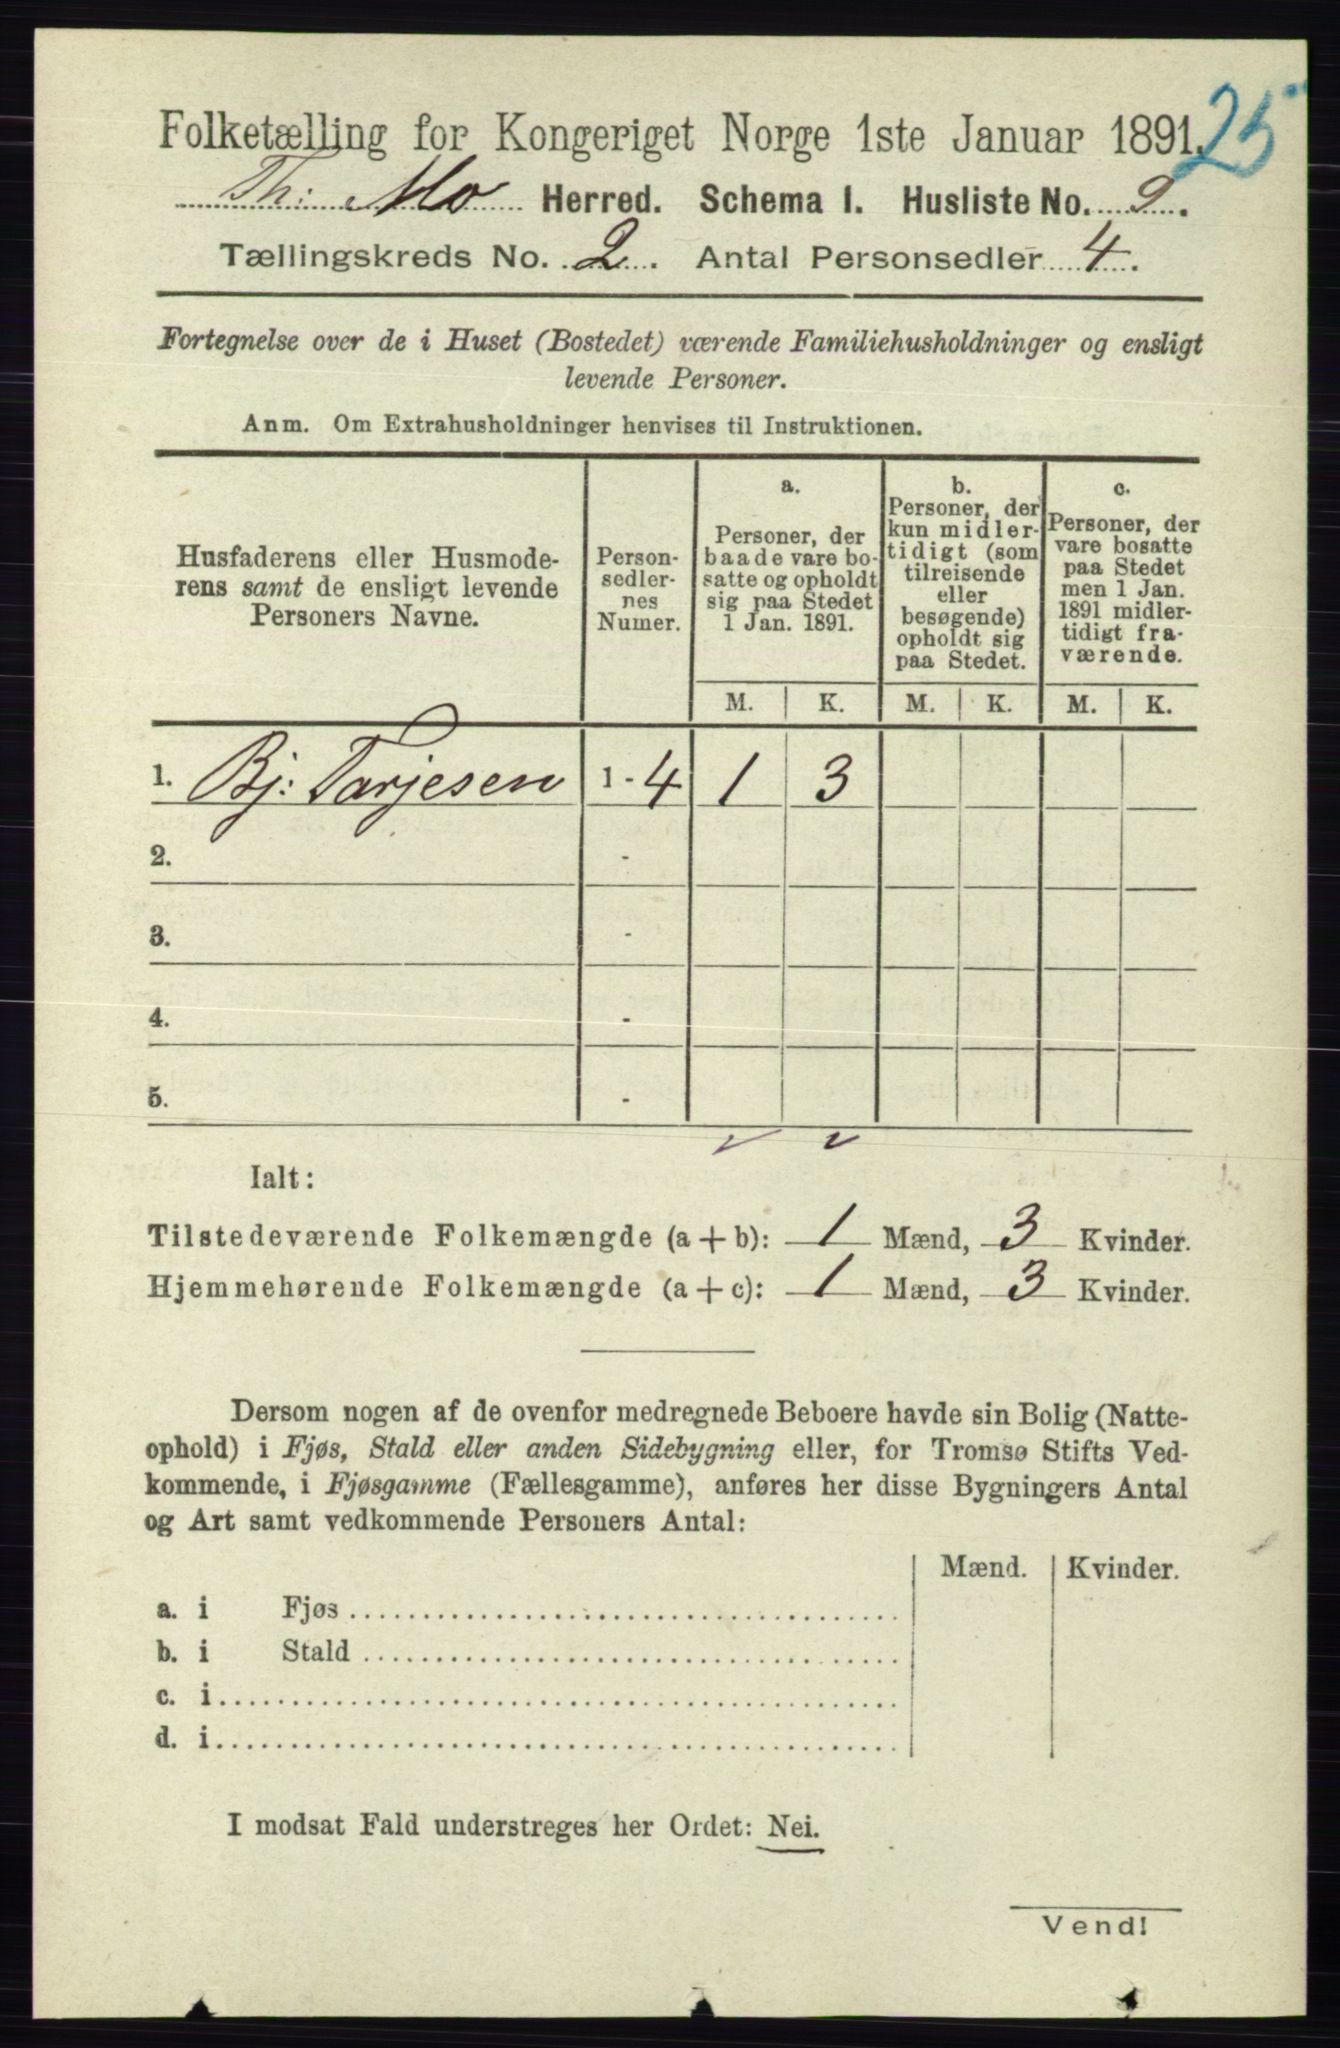 Folketælling for Kongeriget Norge 1ste Januar 1891. 25
Th: Mo Herred. Schema I. Husliste No. 9.
Tællingskreds No. 2. Antal Personsedler 4.
Fortegnelse over de i Huset (Bostedet) værende Familiehusholdninger og ensligt
levende Personer.
Anm. Om Extrahusholdninger henvises til Instruktionen.
Husfaderens eller Husmode-
rens samt de ensligt levende
Personers Navne.
Person-
sedler-
nes
Numer.
a.
Personer, der
baade vare bo-
satte og opholdt
sig paa Stedet
1 Jan. 1891.
b.
Personer, der
kun midler-
tidigt (som
tilreisende
eller
besøgende)
opholdt sig
paa Stedet.
c.
Personer, der
vare bosatte
paa Stedet
men 1 Jan.
1891 midler-
tidigt fra-
værende.
M. K. M. K. M. K.
1. Bj: Tarjesen 1 - 4 1 3
2. -
3. -
4. -
5. -
Ialt:
Tilstedeværende Folkemængde (a + b): 1 Mænd, 3 Kvinder.
Hjemmehørende Folkemængde (a + c): 1 Mænd, 3 Kvinder.
Dersom nogen af de ovenfor medregnede Beboere havde sin Bolig (Natte-
ophold) i Fjøs, Stald eller anden Sidebygning eller, for Tromsø Stifts Ved-
kommende, i Fjøsgamme (Fællesgamme), anføres her disse Bygningers Antal
og Art samt vedkommende Personers Antal:
Mænd. Kvinder.
a. i Fjøs
b. i Stald
c. i
d. i
I modsat Fald understreges her Ordet: Nei.
Vend!